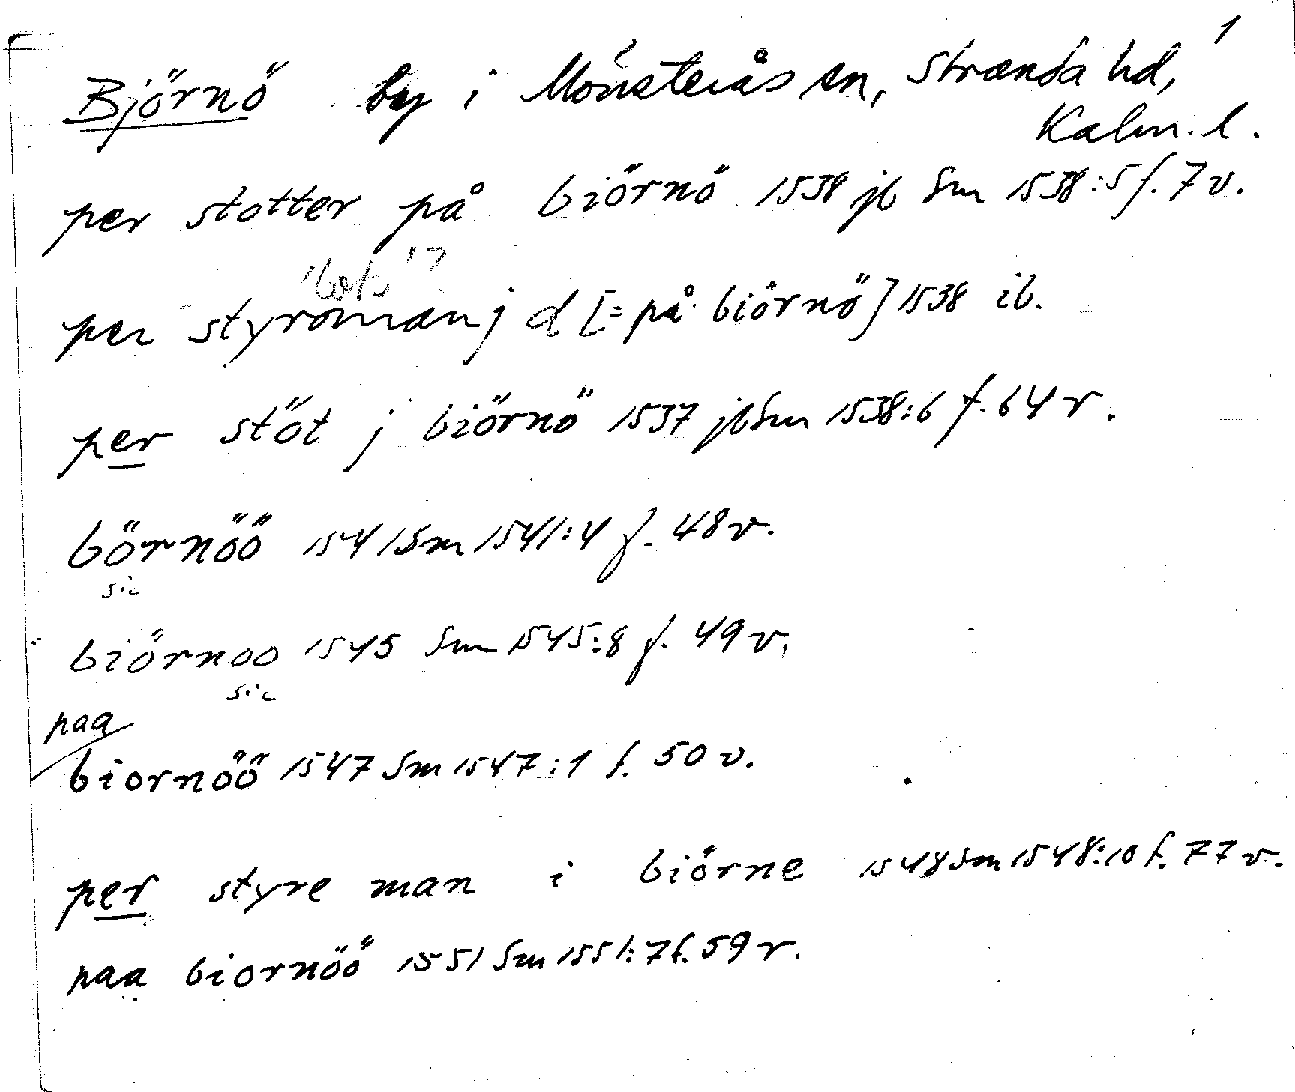 1
Björnö by i Mönsterås sn, Stranda hd,
Kalm. l.
per stotter på biörnö 1538 jb Sm 1538:5 f. 7 v.
'lots'?
per styroman j d [= på biörnö] 1538 ib.
per stöt j biörnö 1537 jb Sm 1538:6 f. 64 r.
börnöö 1541 Sm 1541:4 f. 48 v.
sic
biörnoo 1545 Sm 1545:8 f. 49 v.
sic
paa
biornöö 1547 Sm 1547:1 f. 50 v.
per styre man i biörne 1548 Sm 1548:10 f. 77 v.
paa biornöö 1551 Sm 1551:7 f. 59 r.